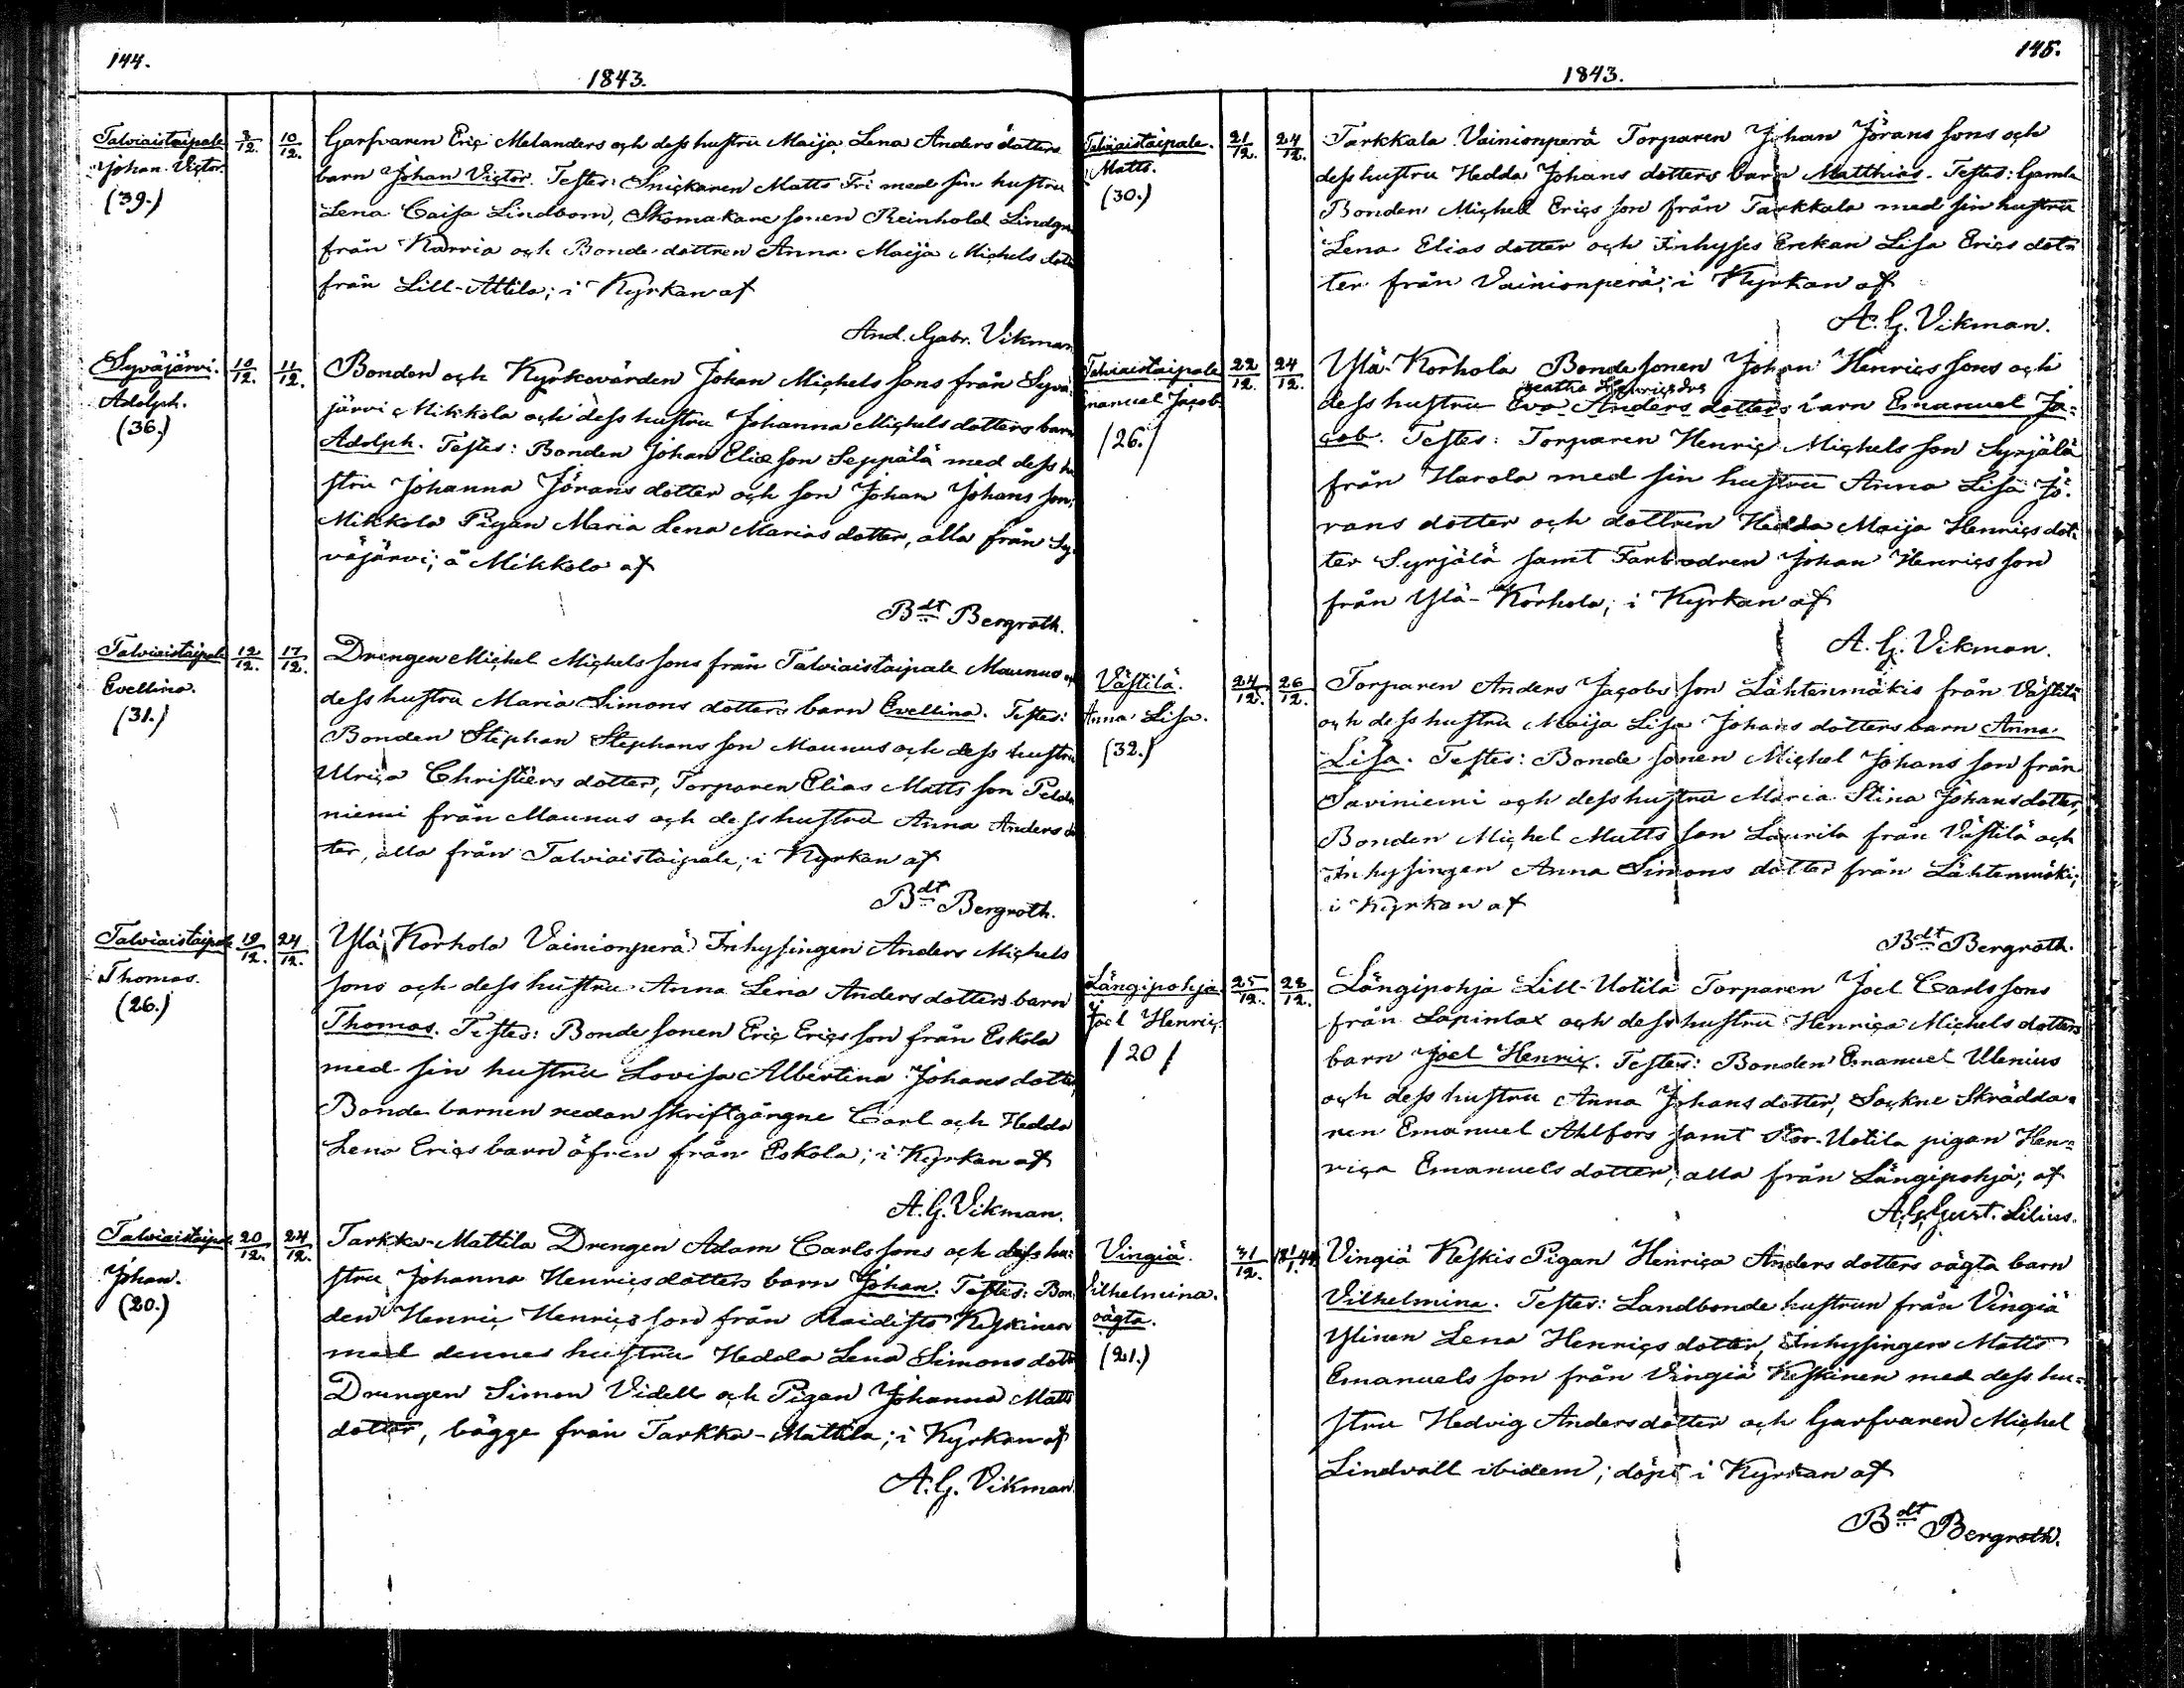 144.
1843.
Talviaistaipale
Johan Victor.
(39.)
3/12.
10/12.
Garfvaren Eric Melanders och dess hustru Maija Lena Anders dotters
barn Johan Victor. Testes: Snickaren Matts Fri med sin hustru
Lena Caisa Lindborn, Skomakare sonen Reinhold Lindgren
från Karvia och Bonde dottren Anna Maija Michels dotter
från Lill-Attila; i Kyrkan af
And. Gabr. Vikman.
Syväjärvi.
Adolph.
(36.)
10/12.
11/12.
Bonden och Kyrkovärden Johan Michels sons från Syvä-
järvi Mikkola och dess hustru Johanna Michels dotters barn
Adolph. Testes: Bonden Johan Eliæ son Seppälä med dess hu
stru Johanna Jörans dotter och son Johan Johans son,
Mikkola Pigan Maria Lena Marias dotter, alla från Sy-
väjärvi; å Mikkola af
Bdt Bergroth.
Talviaistaipale
Evellina.
(31.)
12/12.
17/12.
Drengen Michel Michels sons från Talviaistaipale Maunus och
dess hustru Maria Simons dotters barn Evellina. Testes:
Bonden Stephan Stephans son Maunus och dess hustru
Ulrica Christiers dotter, Torparen Elias Matts son Peldo
niemi från Maunus och dess hustru Anna Anders dot
ter, alla från Talviaistaipale; i Kyrkan af
Bdt Bergroth.
Talviaistaipale
Thomas.
(26.)
19/12.
24/12.
Ylä Korhola Vainionperä Inhysingen Anders Michels
sons och dess hustru Anna Lena Anders dotters barn
Thomas. Testes: Bonde sonen Eric Erics son från Eskola
med sin hustru Lovisa Albertina Johans dotter,
Bonde barnen redan skriftgångne Carl och Hedda
Lena Erics barn äfven från Eskola; i Kyrkan af
A. G. Vikman.
Talviaistaipale
Johan.
(20.)
20/12.
24/12.
Tarkka-Mattila Drengen Adam Carls sons och dess hu-
stru Johanna Henrics dotters barn Johan. Testes: Bon
den Henric Henrics son från Raidisto Keskinen
med dennes hustru Hedda Lena Simons dotter
Drengen Simon Videll och Pigan Johanna Matts
dotter, bägge från Tarkka-Mattila; i Kyrkan af
A. G. Vikman.
145.
1843.
Talviaistaipale.
Matts.
(30.)
21/12.
24/12.
Tarkkala Vainionperä Torparen Johan Jörans sons och
dess hustru Hedda Johans dotters barn Matthias. Testes: Gamla
Bonden Michel Erics son från Tarkkala med sin hustru
Lena Elias dotter och Inhyses Enkan Lisa Erics dot-
ter från Vainionperä; i Kyrkan af
A. G. Vikman.
Talviaistaipale
Emanuel Jacob.
/26./
22/12.
24/12.
Ylä-Korhola Bonde sonen Johan Henrics sons och
Henricsdrs
dess hustru Eva Anders dotters barn Emanuel Ja-
cob. Testes: Torparen Henric Michels son Syrjälä
från Harola med sin hustru Anna Lisa Jö-
rans dotter och dottren Hedda Maija Henrics dot-
ter Syrjälä samt Farbrodren Johan Henrics son
från Ylä-Korhola; i Kyrkan af
A. G. Vikman.
Västilä.
Anna Lisa.
(32.)
24/12.
26/12.
Torparen Anders Jacobs son Lähtenmäkis från Västilä
och dess hustru Maija Lisa Johans dotters barn Anna
Lisa. Testes: Bonde sonen Michel Johans son från
Saviniemi och dess hustru Maria Stina Johans dotter,
Bonden Michel Matts son Laurila från Västilä och
Inhysingen Anna Simons dotter från Lähtenmäki;
i Kyrkan af
Bdt Bergroth.
Längipohja
Joel Henric.
/20/
25/12.
28/12.
Längipohja Lill-Uotila Torparen Joel Carls sons
från Lapinlax och dess hustru Henrica Michels dotters
barn Joel Henric. Testes: Bonden Emanuel Ulenius
och dess hustru Anna Johans dotter, Sockne Skrädda-
ren Emanuel Ahlfors samt Stor-Uotila pigan Hen-
rica Emanuels dotter, alla från Längipohja; af
A. G. Gust. Lilius.
Vingiä.
Vilhelmina.
oägta.
(21.)
31/12.
18 1/1. 44
Vingiä Keskis Pigan Henrica Anders dotters oägta barn
Vilhelmina. Testes: Landbonde hustrun från Vingiä
Ylinen Lena Henrics dotter, Inhysingen Matts
Emanuels son från Vingiä Keskinen med dess hu-
stru Hedvig Anders dotter och Garfvaren Michel
Lindvall ibidem; döpt i Kyrkan af
Bdt Bergroth.